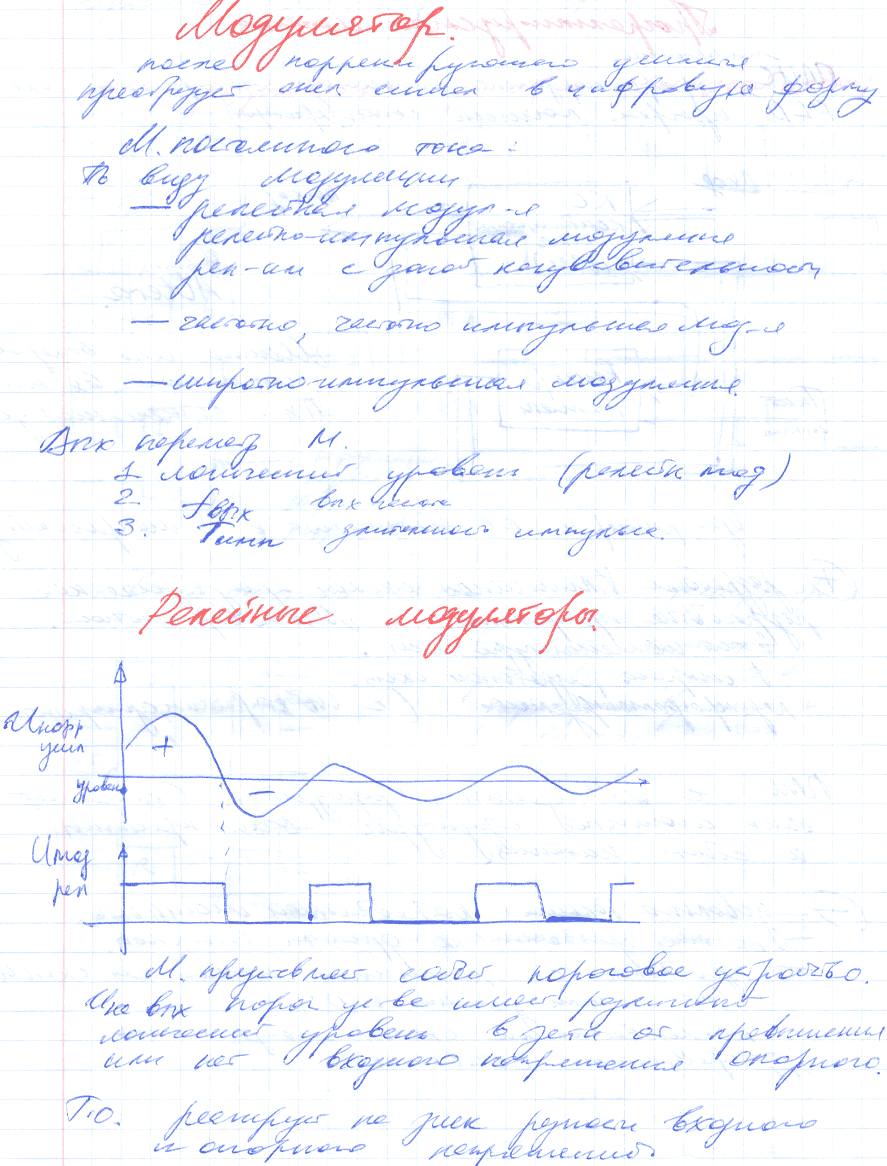 Модулятор.
после корректирующего усилителя
преобразует сигнал в цифровую форму
М. постоянного тока:
По виду модуляции
— релейная модул-я
релейно-импульсная модуляция
рел-им с зоной нечувствительности
— частотно, частотно импульсная мод-я
— широтно-импульсная модуляция.
Вых параметр М.
1. логический уровень (релейн мод)
2. fвых вых
3. Tимп длительность импульса.
Релейные модуляторы.
Uкорр
усил
+
уровень
—
Uмод
рел
М. представляет собой пороговое устройство.
U на вых порог устр-ва имеет различный
логический уровень в от превышения
или нет входного напряжения опорного.
Т.о. реагирует на знак разности входного
и опорного напряжений